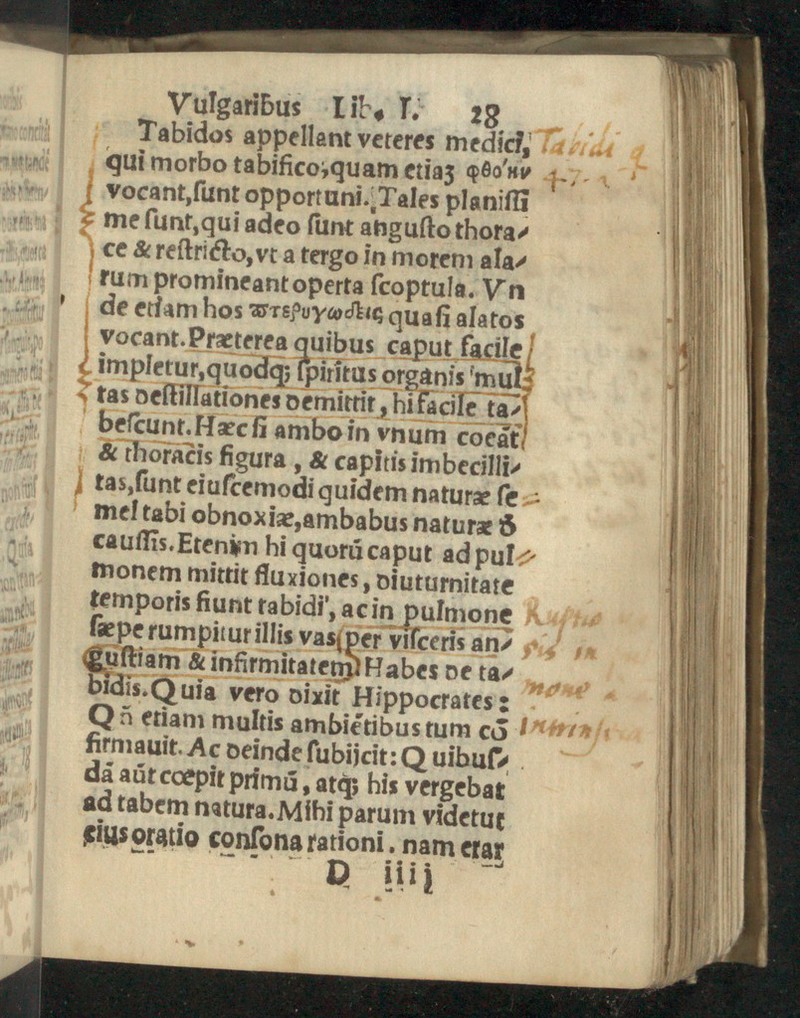 Vulgaribus Lib. I. 28
Tabidos appellant veteres medici,
qui morbo tabifico,quam etiaʒ φθο'ην
vocant,ſunt opportuni. Tales planiſſi
me ſunt,qui adeo ſunt anguſto thora⸗
ce & reſtricto,vt a tergo in morem ala⸗
rum promineant operta ſcoptula. Vn
de etiam hos πτερυγώδεις quaſi alatos
vocant. Præterea quibus caput facile
impletur,quodqꝫ ſpiritus organis mul⸗
tas deſtillationes demittit, hi facile ta⸗
beſcunt. Hæc ſi ambo in vnum coeāt
& thoracis figura, & capitis imbecilli⸗
tas,ſunt eiuſcemodi quidem naturæ ſe⸗
mel tabi obnoxiæ,ambabus naturæ ð
cauſſis. Etenim hi quorū caput ad pul⸗
monem mittit fluxiones, diuturnitate
temporis fiunt tabidi, ac in pulmone
ſæpe rumpitur illis vas(per viſceris an⸗
guſtiam & infirmitatem) Habes de ta⸗
bidis. Quia vero dixit Hippocrates:
Qñ etiam multis ambiētibus tum cō
firmauit. Ac deinde ſubijcit: Quibuſ⸗
dā aūt cœpit primū, atqꝫ his vergebat
ad tabem natura. Mihi parum videtur
eius oratio conſona rationi. nam erat
D iiij
Tabidi